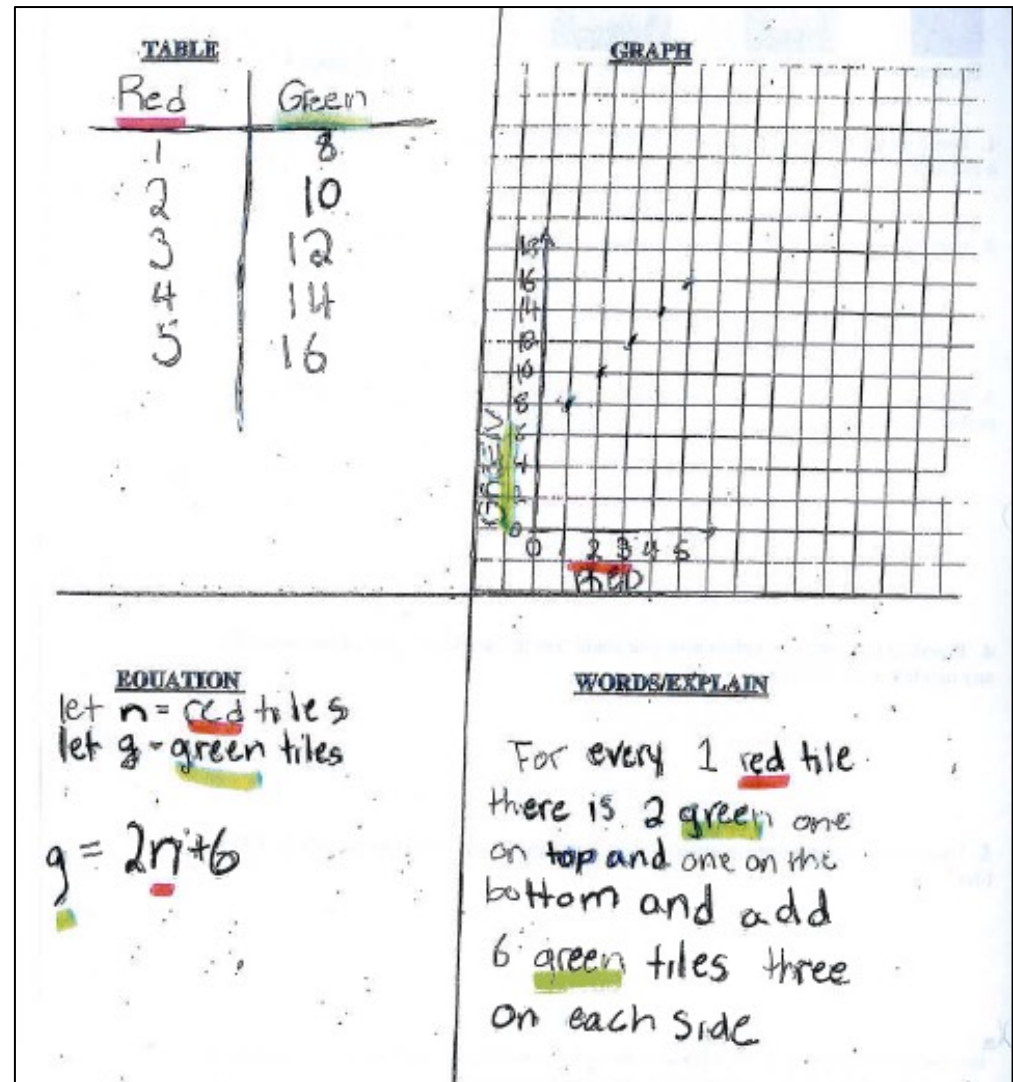 TABLE
Red Green
1 8
2 10
3 12
4 14
5 16
GRAPH
18
16
14
12
10
8
6
4
2
0
GREEN
0 1 2 3 4 5
RED
EQUATION
let n = red tiles
let g = green tiles
g = 2n+6
WORDS/EXPLAIN
For every 1 red tile
there is 2 green one
on top and one on the
bottom and add
6 green tiles three
on each side